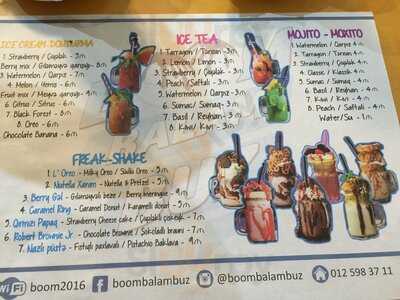 ICE CREAM-DONDURMA
1. Strawberry / Çiyələk - 3m
Berry mix / Giləmeyvə qarışığı - 8m
3. Watermelon / Qarpız - 7m
4. Melon / Yemiş - 6m
Fruit mix / Meyvə qarışığı - 4m
6. Citrus / Sitrus - 6m
7. Black Forest - 8m
8. Oreo - 6m
Chocolate Banana - 6m
ICE TEA
1. Tarragon / Tərxun - 3m
2. Lemon / Limon - 3m
3. Strawberry / Çiyələk - 3m
4. Peach / Şaftalı - 3m
5. Watermelon / Qarpız - 3m
6. Sumac / Sumaq - 3m
7. Basil / Reyhan - 3m
8. Kiwi / Kivi - 3m
MOJITO - MOXITO
1. Watermelon / Qarpız - 4m
2. Tarragon / Tərxun - 4m
3. Strawberry / Çiyələk - 4m
4. Classic / Klassik - 4m
5. Sumac / Sumaq - 4m
6. Basil / Reyhan - 4m
7. Kiwi / Kivi - 4m
8. Peach / Şaftalı - 4m
Water/Su - 1m
FREAK-SHAKE
1. L' Oreo - Milky Oreo / Südlü Oreo - 5m
2. Nutella Xanım - Nutella & Pretzel - 5m
3. Berry Gal - Giləmeyvəli beze / Berry meringue - 9m
4. Caramel Ring - Caramel Donut / Karamelli donut - 5m
5. Qırmızı Papaq - Strawberry Cheese cake / Çiyələkli çizkeyk - 7m
6. Robert Brownie Jr. - Chocolate Brownie / Şokoladlı brauni - 7m
7. Nazlı püstə - Fıstıqlı paxlavalı / Pistachio Baklava - 9m
WiFi boom2016 boombalambuz @boombalambuz 012 598 37 11